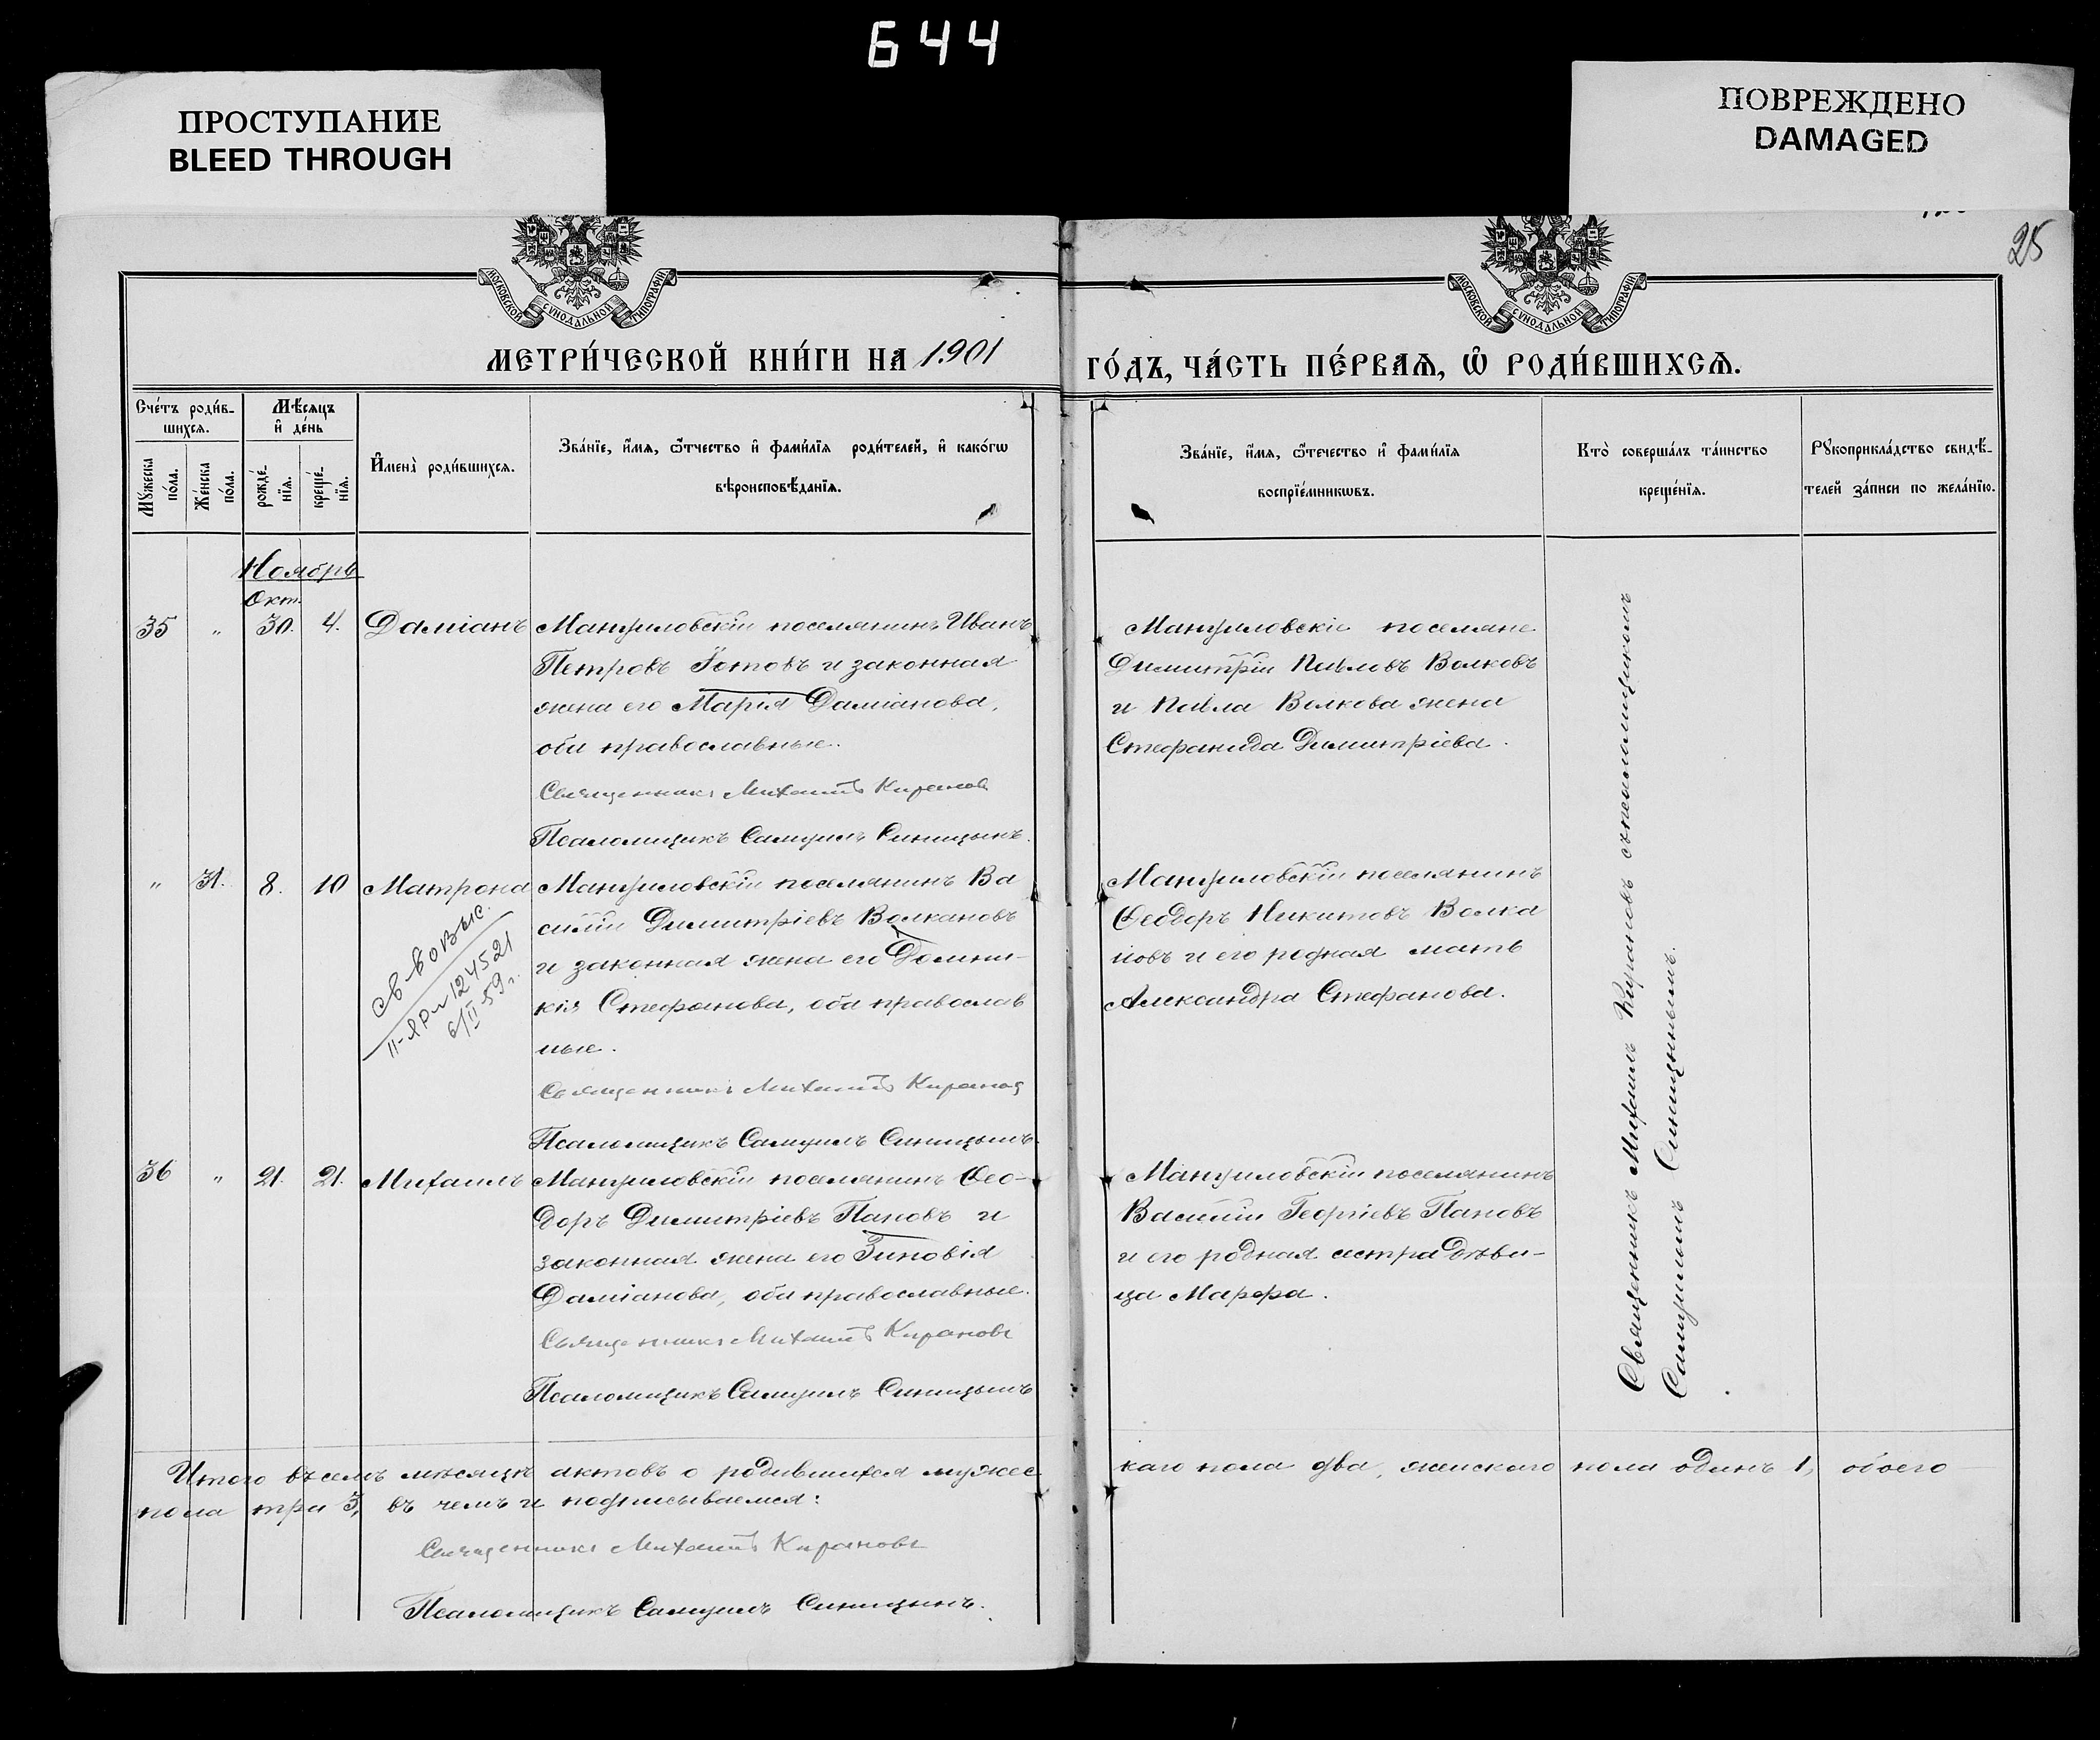 644
ПРОСТУПАНИЕ
BLEED THROUGH
ПОВРЕЖДЕНО
DAMAGED
25
МОСКОВСКОЙ СѴНОДАЛЬНОЙ ТИПОГРАФІИ
МОСКОВСКОЙ СѴНОДАЛЬНОЙ ТИПОГРАФІИ
МЕТРИ́ЧЕСКОЙ КНИ́ГИ НА 1901
ГО́ДЪ, ЧА́СТЬ ПЕ́РВАѦ, Ѡ҆ РОДИ́ВШИХСѦ.
Сче́тъ роди́в-
шихсѧ.
Мѣ́сѧцъ
и҆ де́нь
Мꙋ́жеска
по́ла.
Же́нска
по́ла.
рожде́-
нїѧ.
креще́-
нїѧ.
И҆мена̀ роди́вшихсѧ.
Зва́нїе, и҆́мѧ, ѻ҆́тчество и҆ фами́лїѧ роди́телей, и҆ како́гѡ
вѣроисповѣ́данїѧ.
Зва́нїе, и҆́мѧ, ѻ҆́течество и҆ фами́лїѧ
воспрїе́мникѡвъ.
Кто̀ соверша́лъ та́инство
креще́нїѧ.
Рꙋкоприкла́дство свидѣ́-
телей за́писи по жела́нїю.
Ноябрь
Окт.
35 " 30. 4. Даміанъ Мануиловскій поселянинъ Иванъ
Петровъ Іотовъ и законная
жена его Марія Даміанова,
оба православные.
Священникъ Михаилъ Кирановъ
Псаломщикъ Самуилъ Синицынъ.
Мануиловскіе поселяне
Димитрій Павловъ Волковъ
и Павла Волкова жена
Стефанида Димитріева.
" 31. 8. 10 Матрона Мануиловскій поселянинъ Ва
силій Димитріевъ Волкановъ
и законная жена его Домни-
кія Стефанова, оба православ
ные.
Священникъ Михаилъ Кирановъ
Псаломщикъ Самуилъ Синицынъ.
св-во выс.
II-ЯР № 124521
6/II-59г.
Мануиловскій поселянинъ
Феодоръ Никитовъ Волка
новъ и его родная мать
Александра Стефанова.
36 " 21. 21. Михаилъ Мануиловскій поселянинъ Фео-
доръ Димитріевъ Пановъ и
законная жена его Зиновія
Даміанова, оба православные.
Священникъ Михаилъ Кирановъ
Псаломщикъ Самуилъ Синицынъ
Мануиловскій поселянинъ
Василій Георгіевъ Пановъ
и его родная сестра дѣви-
ца Марфа.
Священникъ Михаилъ Кирановъ съ псаломщикомъ
Самуиломъ Синицынымъ.
Итого въ семъ мѣсяцѣ актовъ о родившихся мужес
каго пола два, женскаго пола одинъ 1, обоего
пола три 3, въ чемъ и подписываемся:
Священникъ Михаилъ Кирановъ
Псаломщикъ Самуилъ Синицынъ.